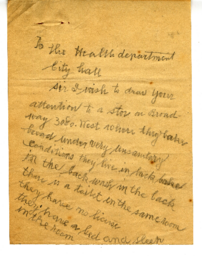 To the Health department
City hall
Sir I wish to draw your
attention to a stor on Broad
way 3080. West where they
under very unsanitary
conditions they live in back
in the back in the back
there is a toilet in the same room
they have no license
they have a bed and sleep
in the room